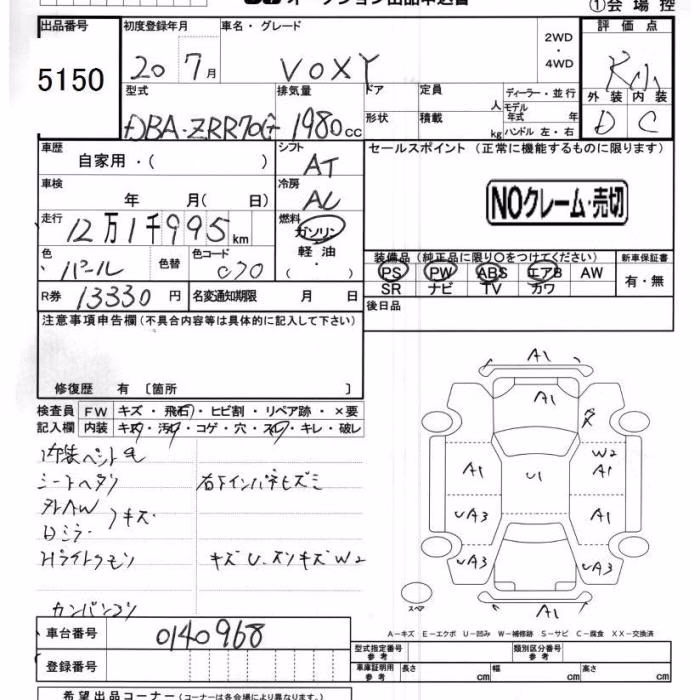 オークション出品申込書
①会場控
出品番号 初度登録年月 車名・グレード 2WD・4WD 評価点
5150 20 7月 VOXY
型式 排気量 ドア 定員 人 ディーラー・並行 外装 内装
DBA-ZRR70G 1980cc 形状 積載 kg モデル年式 年 ハンドル 左・右 D C
車歴 自家用・( ) シフト AT セールスポイント (正常に機能するものに限ります)
車検 年 月( 日) 冷房 AC
NOクレーム・売切
走行 12万1千995km 燃料 ガソリン 軽油・
色 パール 色替 色コード 070 装備品 (純正品に限り○をつけてください) 新車保証書
PS PW ABS エアB AW 有・無
SR ナビ TV カワ
R券 13330円 名変通知期限 月 日 後日品
注意事項申告欄 (不具合内容等は具体的に記入して下さい)
修復歴 有 〔箇所 〕
検査員 FW キズ・飛石・ヒビ割・リペア跡・×要
記入欄 内装 キズ・汚れ・コゲ・穴・スレ・キレ・破レ
シートヘタリ 右下インパネヒズミ
キズ
キズU.ズレキズW2
A1
A1
W2
A1 U1 A1
UA3 A1
UA3 UA3
スペア A1
A-キズ E-エクボ U-凹み W-補修跡 S-サビ C-腐食 XX-交換済
車台番号 0140968 型式指定番号 参考 類別区分番号 参考
登録番号 車庫証明用 参考 長さ cm 幅 cm 高さ cm
希望出品コーナー (コーナーは各会場により異なります。)